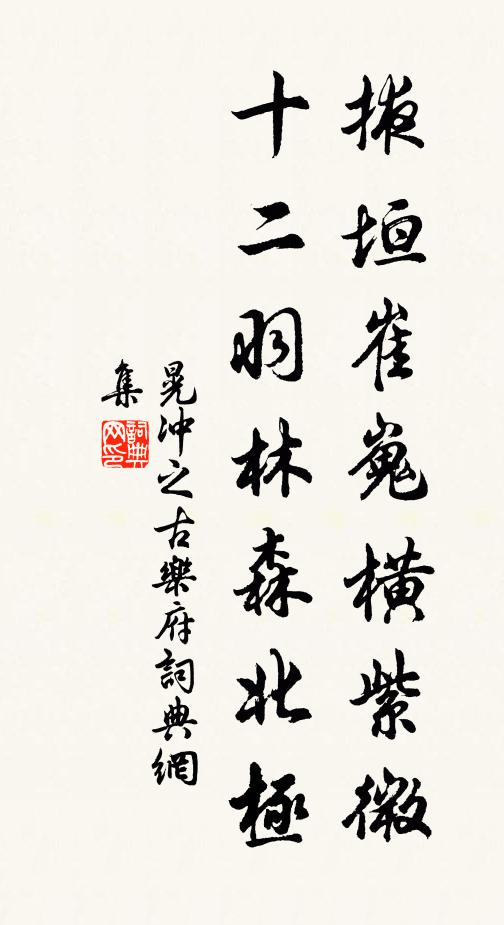 掖垣崔嵬橫紫微
十二羽林森北極
晁沖之古樂府詞典網
集
詞典
网印